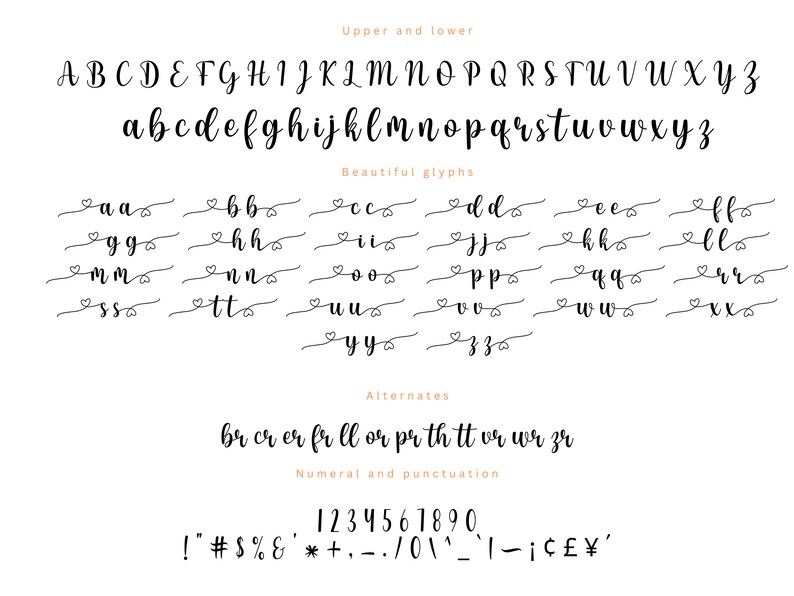 Upper and lower
A B C D E F G H I J K L M N O P Q R S T U V W X Y Z
a b c d e f g h i j k l m n o p q r s t u v w x y z
Beautiful glyphs
a a b b c c d d e e f f
g g h h i i j j k k l l
m m n n o o p p q q r r
s s t t u u v v w w x x
y y z z
Alternates
br cr er fr ll or pr th tt vr wr zr
Numeral and punctuation
1 2 3 4 5 6 7 8 9 0
! " # $ % & ' * + , – . / 0 \ ^ _ ` | ~ ¡ ¢ £ ¥ ´